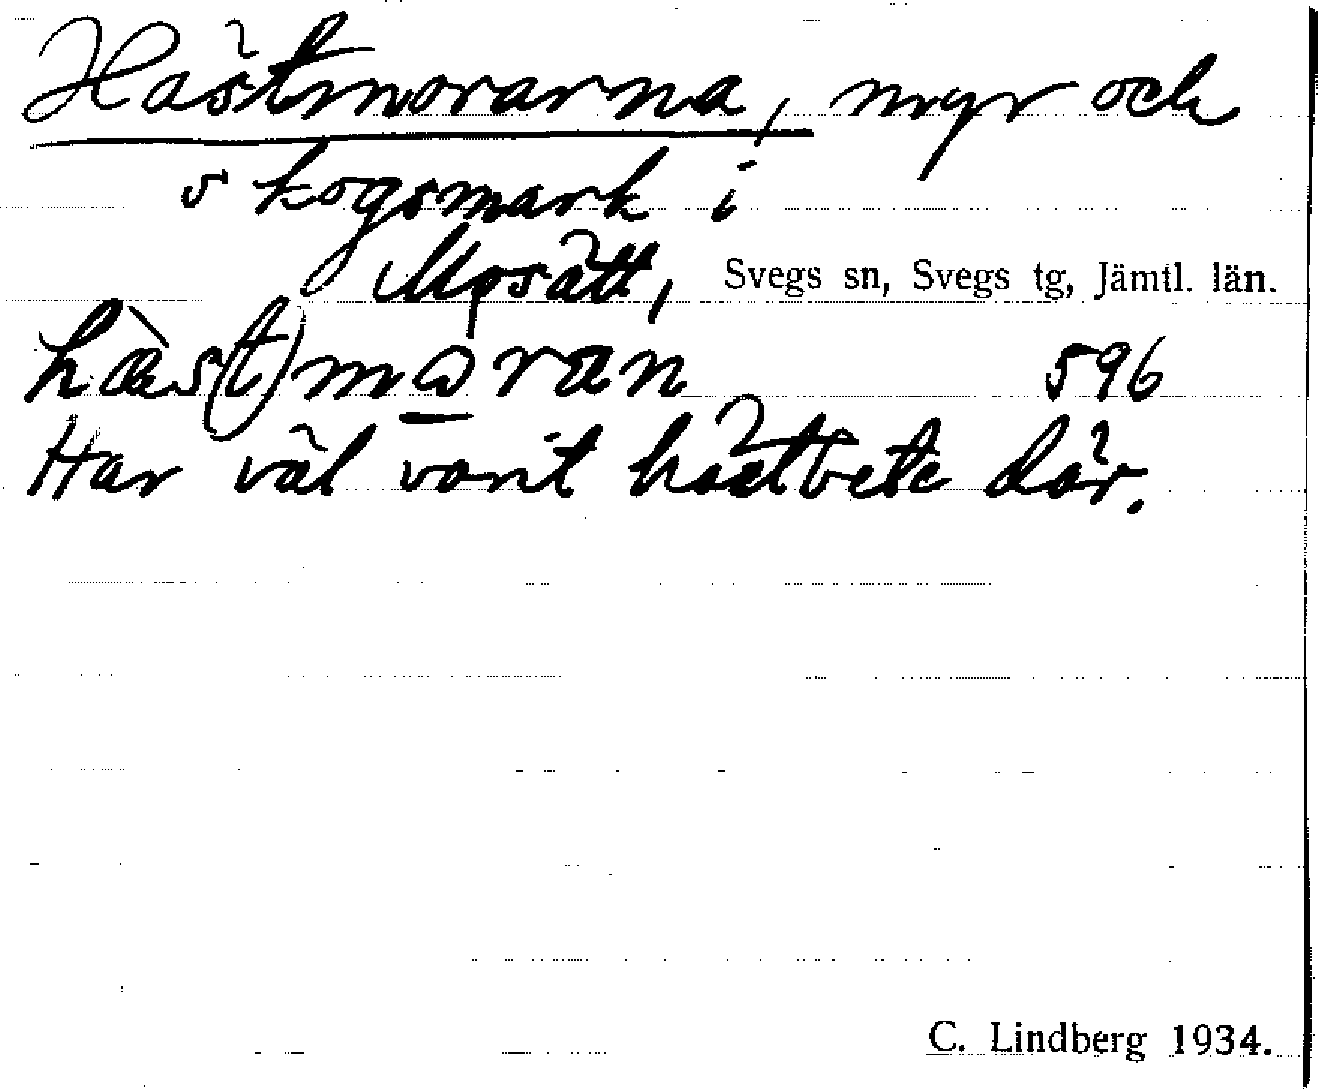 Hästmorarna, myr och
skogsmark i
Mosätt, Svegs sn, Svegs tg, Jämtl. län.
hàs(t)mωran 596
Har väl varit hästbete där.
C. Lindberg 1934.